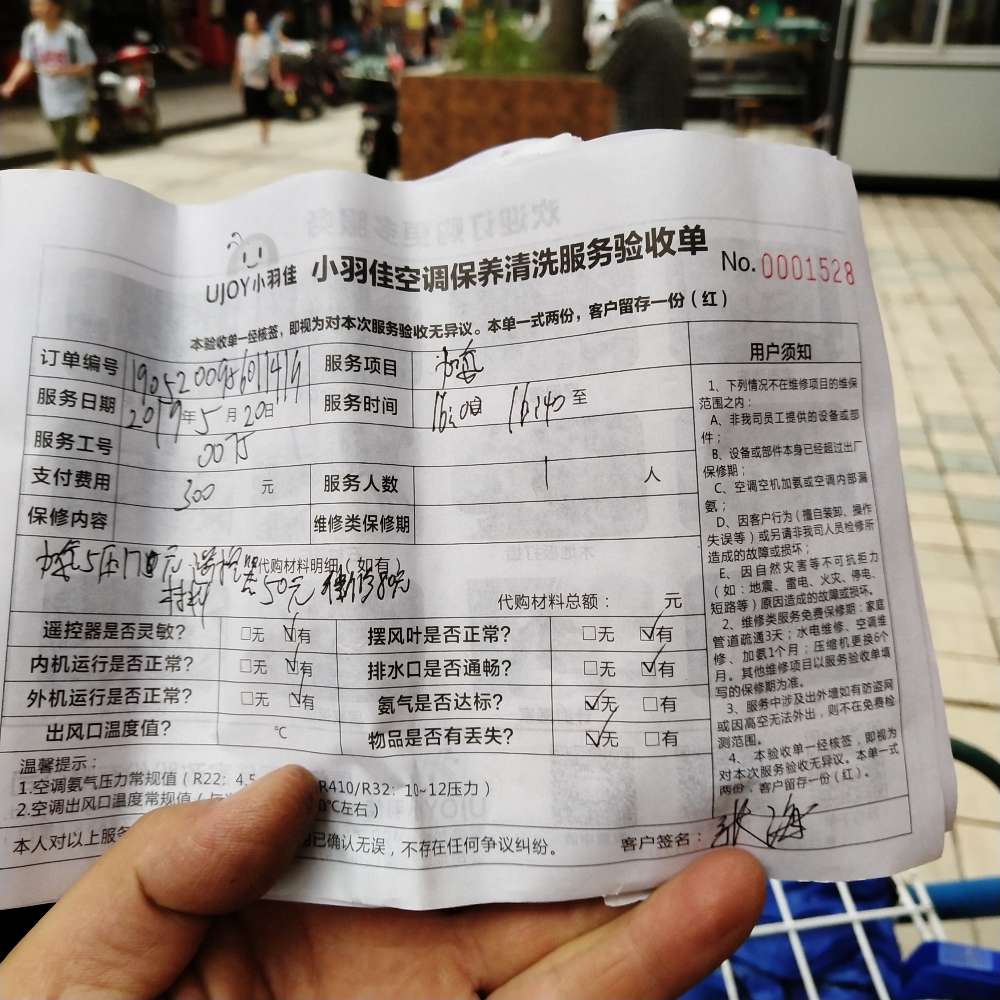 欢迎订购更多服务
UJOY小羽佳 小羽佳空调保养清洗服务验收单 No.0001528
本验收单一经核签，即视为对本次服务验收无异议。本单一式两份，客户留存一份（红）
订单编号 服务项目 加氨
服务日期 2019年5月20日 服务时间 16:00 16:40至
服务工号
支付费用 300元 服务人数 1人
保修内容 维修类保修期
代购材料明细（如有
50元
代购材料总额： 元
遥控器是否灵敏？ □无 ☑有 摆风叶是否正常？ □无 ☑有
内机运行是否正常？ □无 ☑有 排水口是否通畅？ □无 ☑有
外机运行是否正常？ □无 ☑有 氨气是否达标？ ☑无 □有
出风口温度值？ ℃ 物品是否有丢失？ ☑无 □有
温馨提示：
1.空调氨气压力常规值（R22：4.5 R410/R32：10~12压力）
2.空调出风口温度常规值（ 0℃左右）
本人对以上服务 已确认无误，不存在任何争议纠纷。 客户签名：张海
用户须知
1、下列情况不在维修项目的维保
范围之内：
A、非我司员工提供的设备或部
件；
B、设备或部件本身已经超过出厂
保修期；
C、空调空机加氨或空调内部漏
氨；
D、因客户行为（擅自装卸、操作
失误等）或另请非我司人员检修所
造成的故障或损坏；
E、因自然灾害等不可抗拒力
（如：地震、雷电、火灾、停电、
短路等）原因造成的故障或损坏。
2、维修类服务免费保修期：家庭
管道疏通3天；水电维修、空调维
修、加氨1个月；压缩机更换6个
月。其他维修项目以服务验收单填
写的保修期为准。
3、服务中涉及出外墙如有防盗网
或因高空无法外出，则不在免费检
测范围。
4、本验收单一经核签，即视为
对本次服务验收无异议。本单一式
两份，客户留存一份（红）。